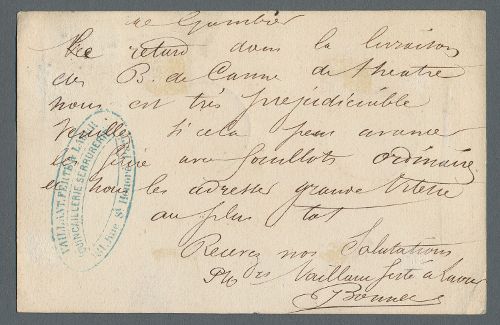 de Gambier
Le retard dans la livraison
des B. de Canne de theatre
nous est très prejudiciable
Veuillez si cela peu avancer
la série avec fouillots ordinaire
et nous les adresser grande Vitesse
au plus tot
Recevez nos Salutations
Vaillant Ferté & Lavier
Bonnec
VAILLANT, FERTÉ & LAVIER
QUINCAILLERIE SERRURERIE
Rue St Honoré